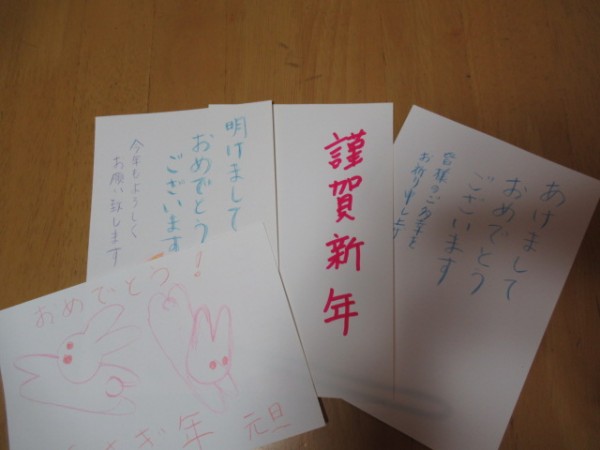 明けまして
おめでとう
ございます
今年もよろしく
お願い致します
謹賀新年
あけまして
おめでとう
ございます
皆様のご多幸を
お祈り申し上
おめでとう!
ぎ年 元旦